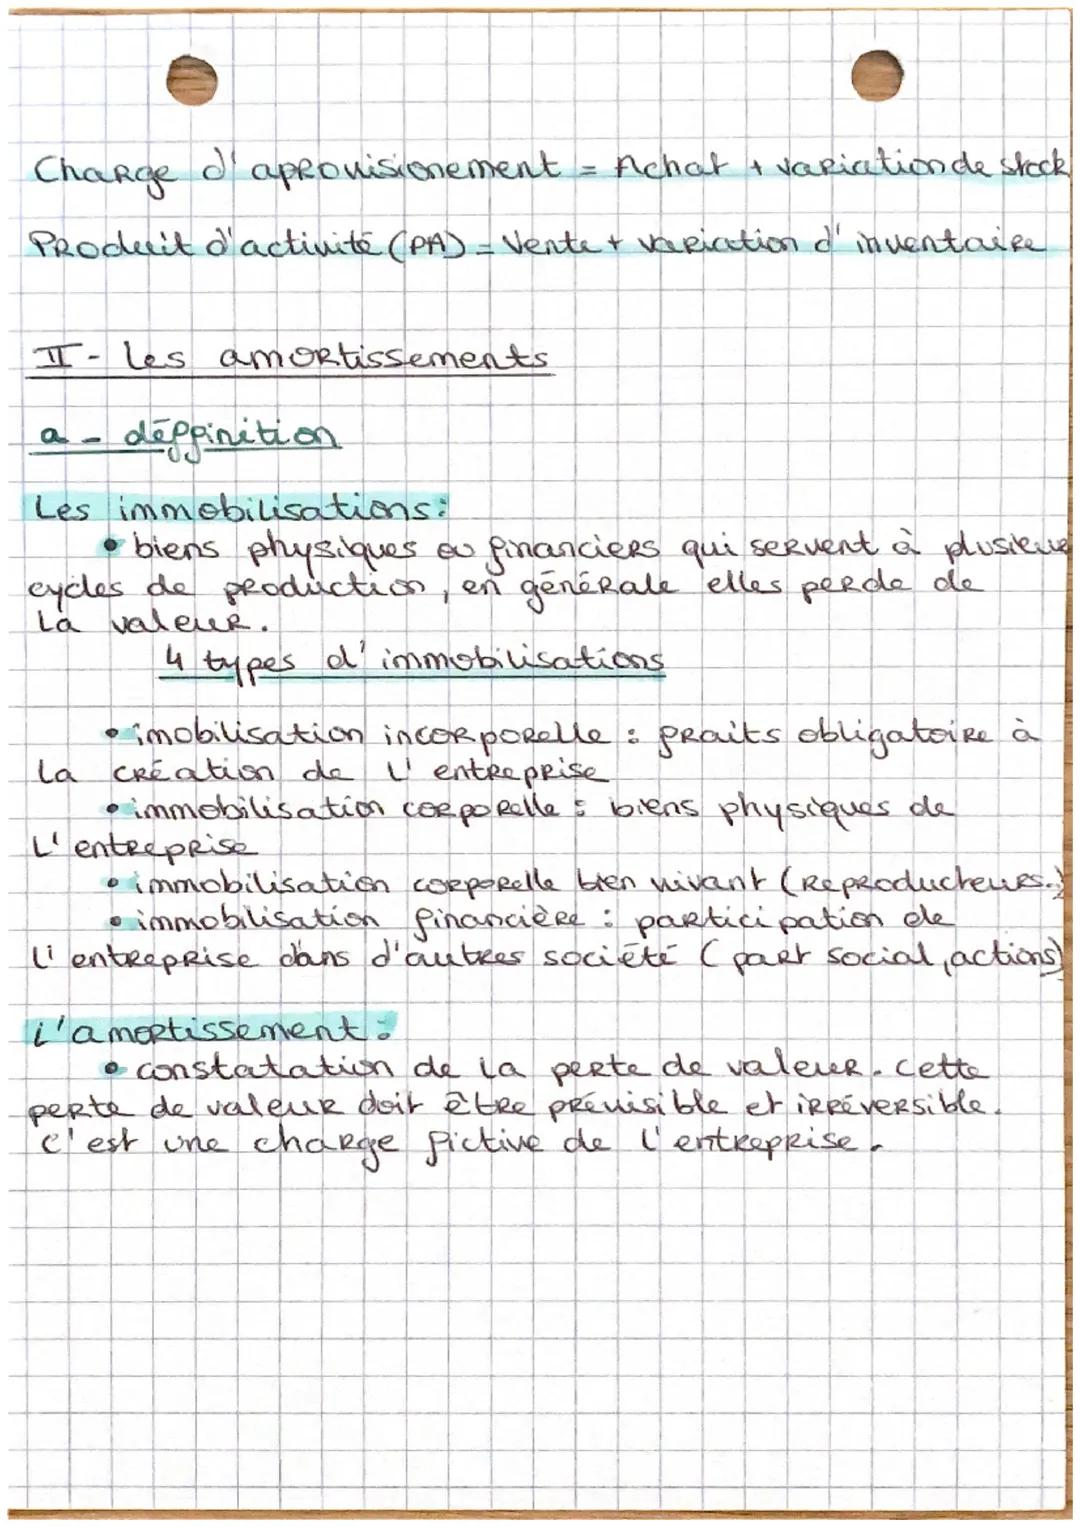 Charge d'aprovisionement = Achat + variation de stock
Produit d'activité (PA) = Vente + variation d'inventaire
II - Les amortissements
a - déffinition
Les immobilisations :
• biens physiques ou financiers qui servent à plusieurs
cycles de production, en générale elles perde de
la valeur.
4 types d'immobilisations
• imobilisation incorporelle : fraits obligatoire à
la création de l'entreprise
• immobilisation corporelle : biens physiques de
l'entreprise
• immobilisation corporelle bien vivant (reproducteurs..)
• immobilisation financière : participation de
l'entreprise dans d'autres société (part social, actions)
L'amortissement :
• constatation de la perte de valeur. Cette
perte de valeur doit être prévisible et irréversible.
C'est une charge fictive de l'entreprise.